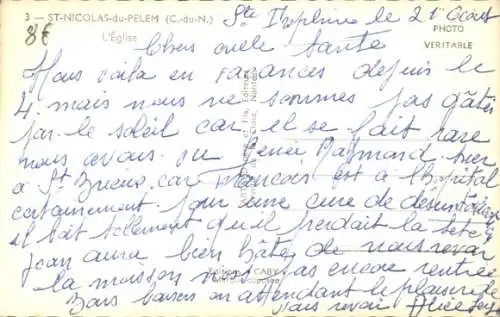 3 — ST-NICOLAS-du-PELEM (C.-du-N.)
L'Église
PHOTO
VERITABLE
8€
Ste Tréphine le 21 Août
Chers oncle tante
Nous voila en vacances depuis le
4 mais nous ne sommes pas gâtés
par le soleil car il se fait rare
nous avons vu Raymond hier
a St Brieuc car François est a l'hopital
certainement pour une cure de desintoxication
il boit tellement qu'il perdait la tete
Jean aura bien hâte de nous revoir
la moisson n'est pas encore rentrée
Bons baisers en attendant le plaisir de
vous revoir Alice
CABY